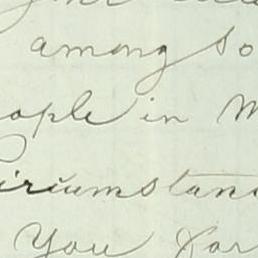 among so
ople in M
ircumstan
You